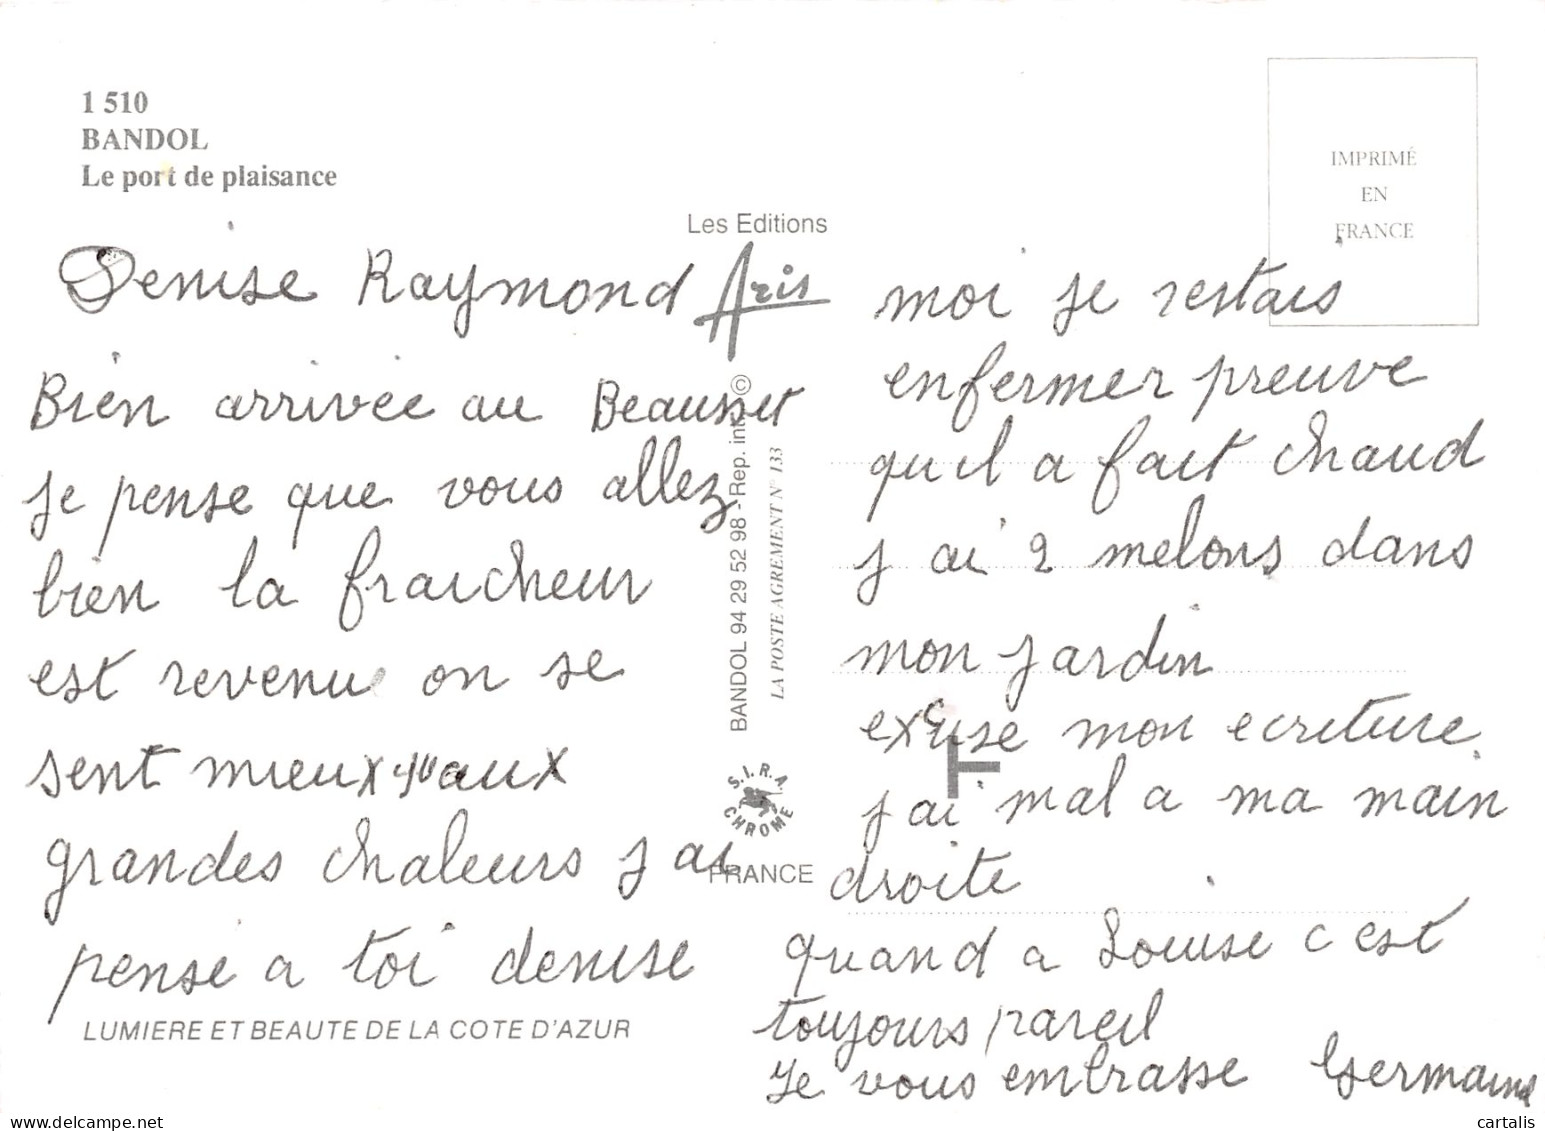 1 510
BANDOL
Le port de plaisance
IMPRIMÉ
EN
FRANCE
Les Editions
Aris
Denise Raymond
Bien arrivée au Beausset
je pense que vous allez
bien la fraicheur
est revenu on se
sent mieux aux
grandes chaleurs j ai
pense a toi denise
LUMIERE ET BEAUTE DE LA COTE D'AZUR
BANDOL 94 29 52 98 - Rep. int. ©
LA POSTE AGREMENT N° 133
S.I.R.A.
CHROME
FRANCE
moi je restais
enfermer preuve
qu il a fait chaud
j ai 2 melons dans
mon jardin
excuse mon ecriture
j ai mal a ma main
droite
quand a Louise c est
toujours pareil
Je vous embrasse Germaine
cartalis
delcampe.net